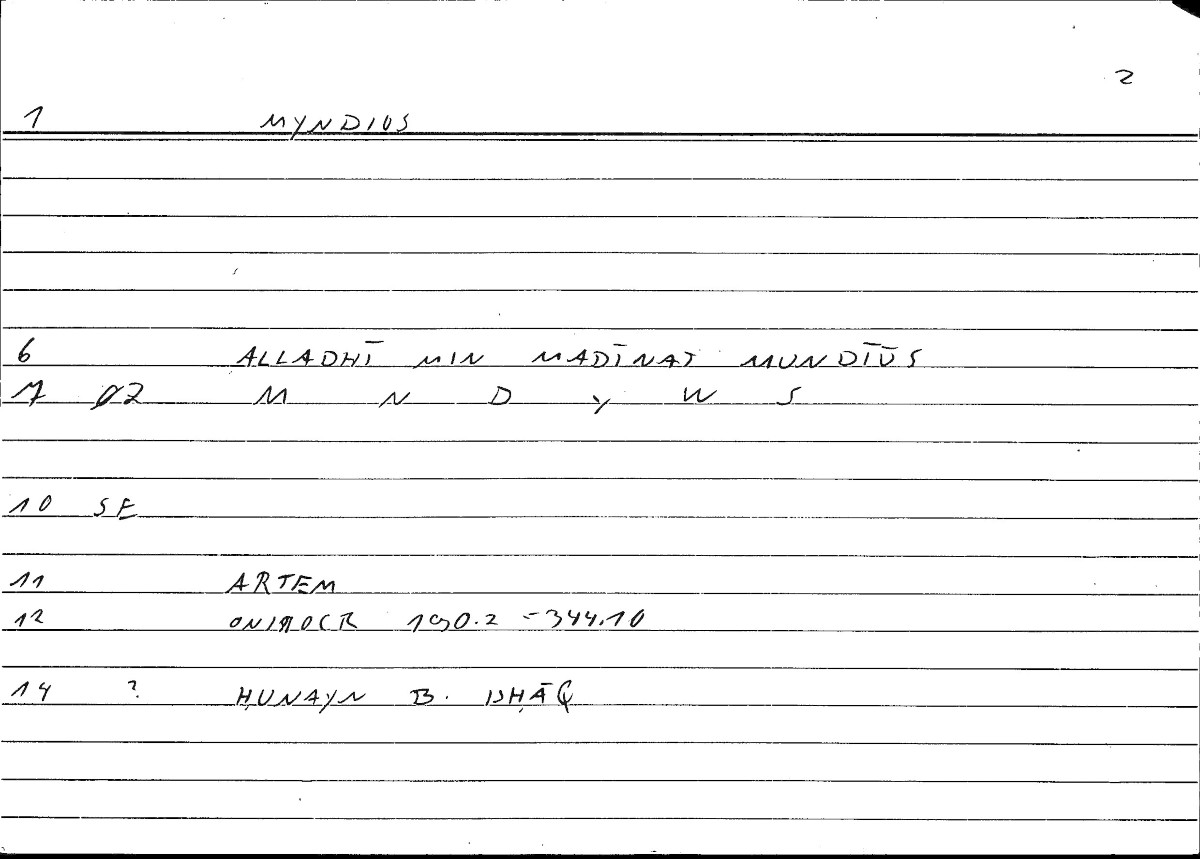 2
1 MYNDIUS
6 ALLADHĪ MIN MADĪNAT MUNDĪŪS
7 02 M N D Y W S
10 SE
11 ARTEM
12 ONIROCR 190.2 = 344.10
14 ? ḤUNAYN B. ISḤĀQ